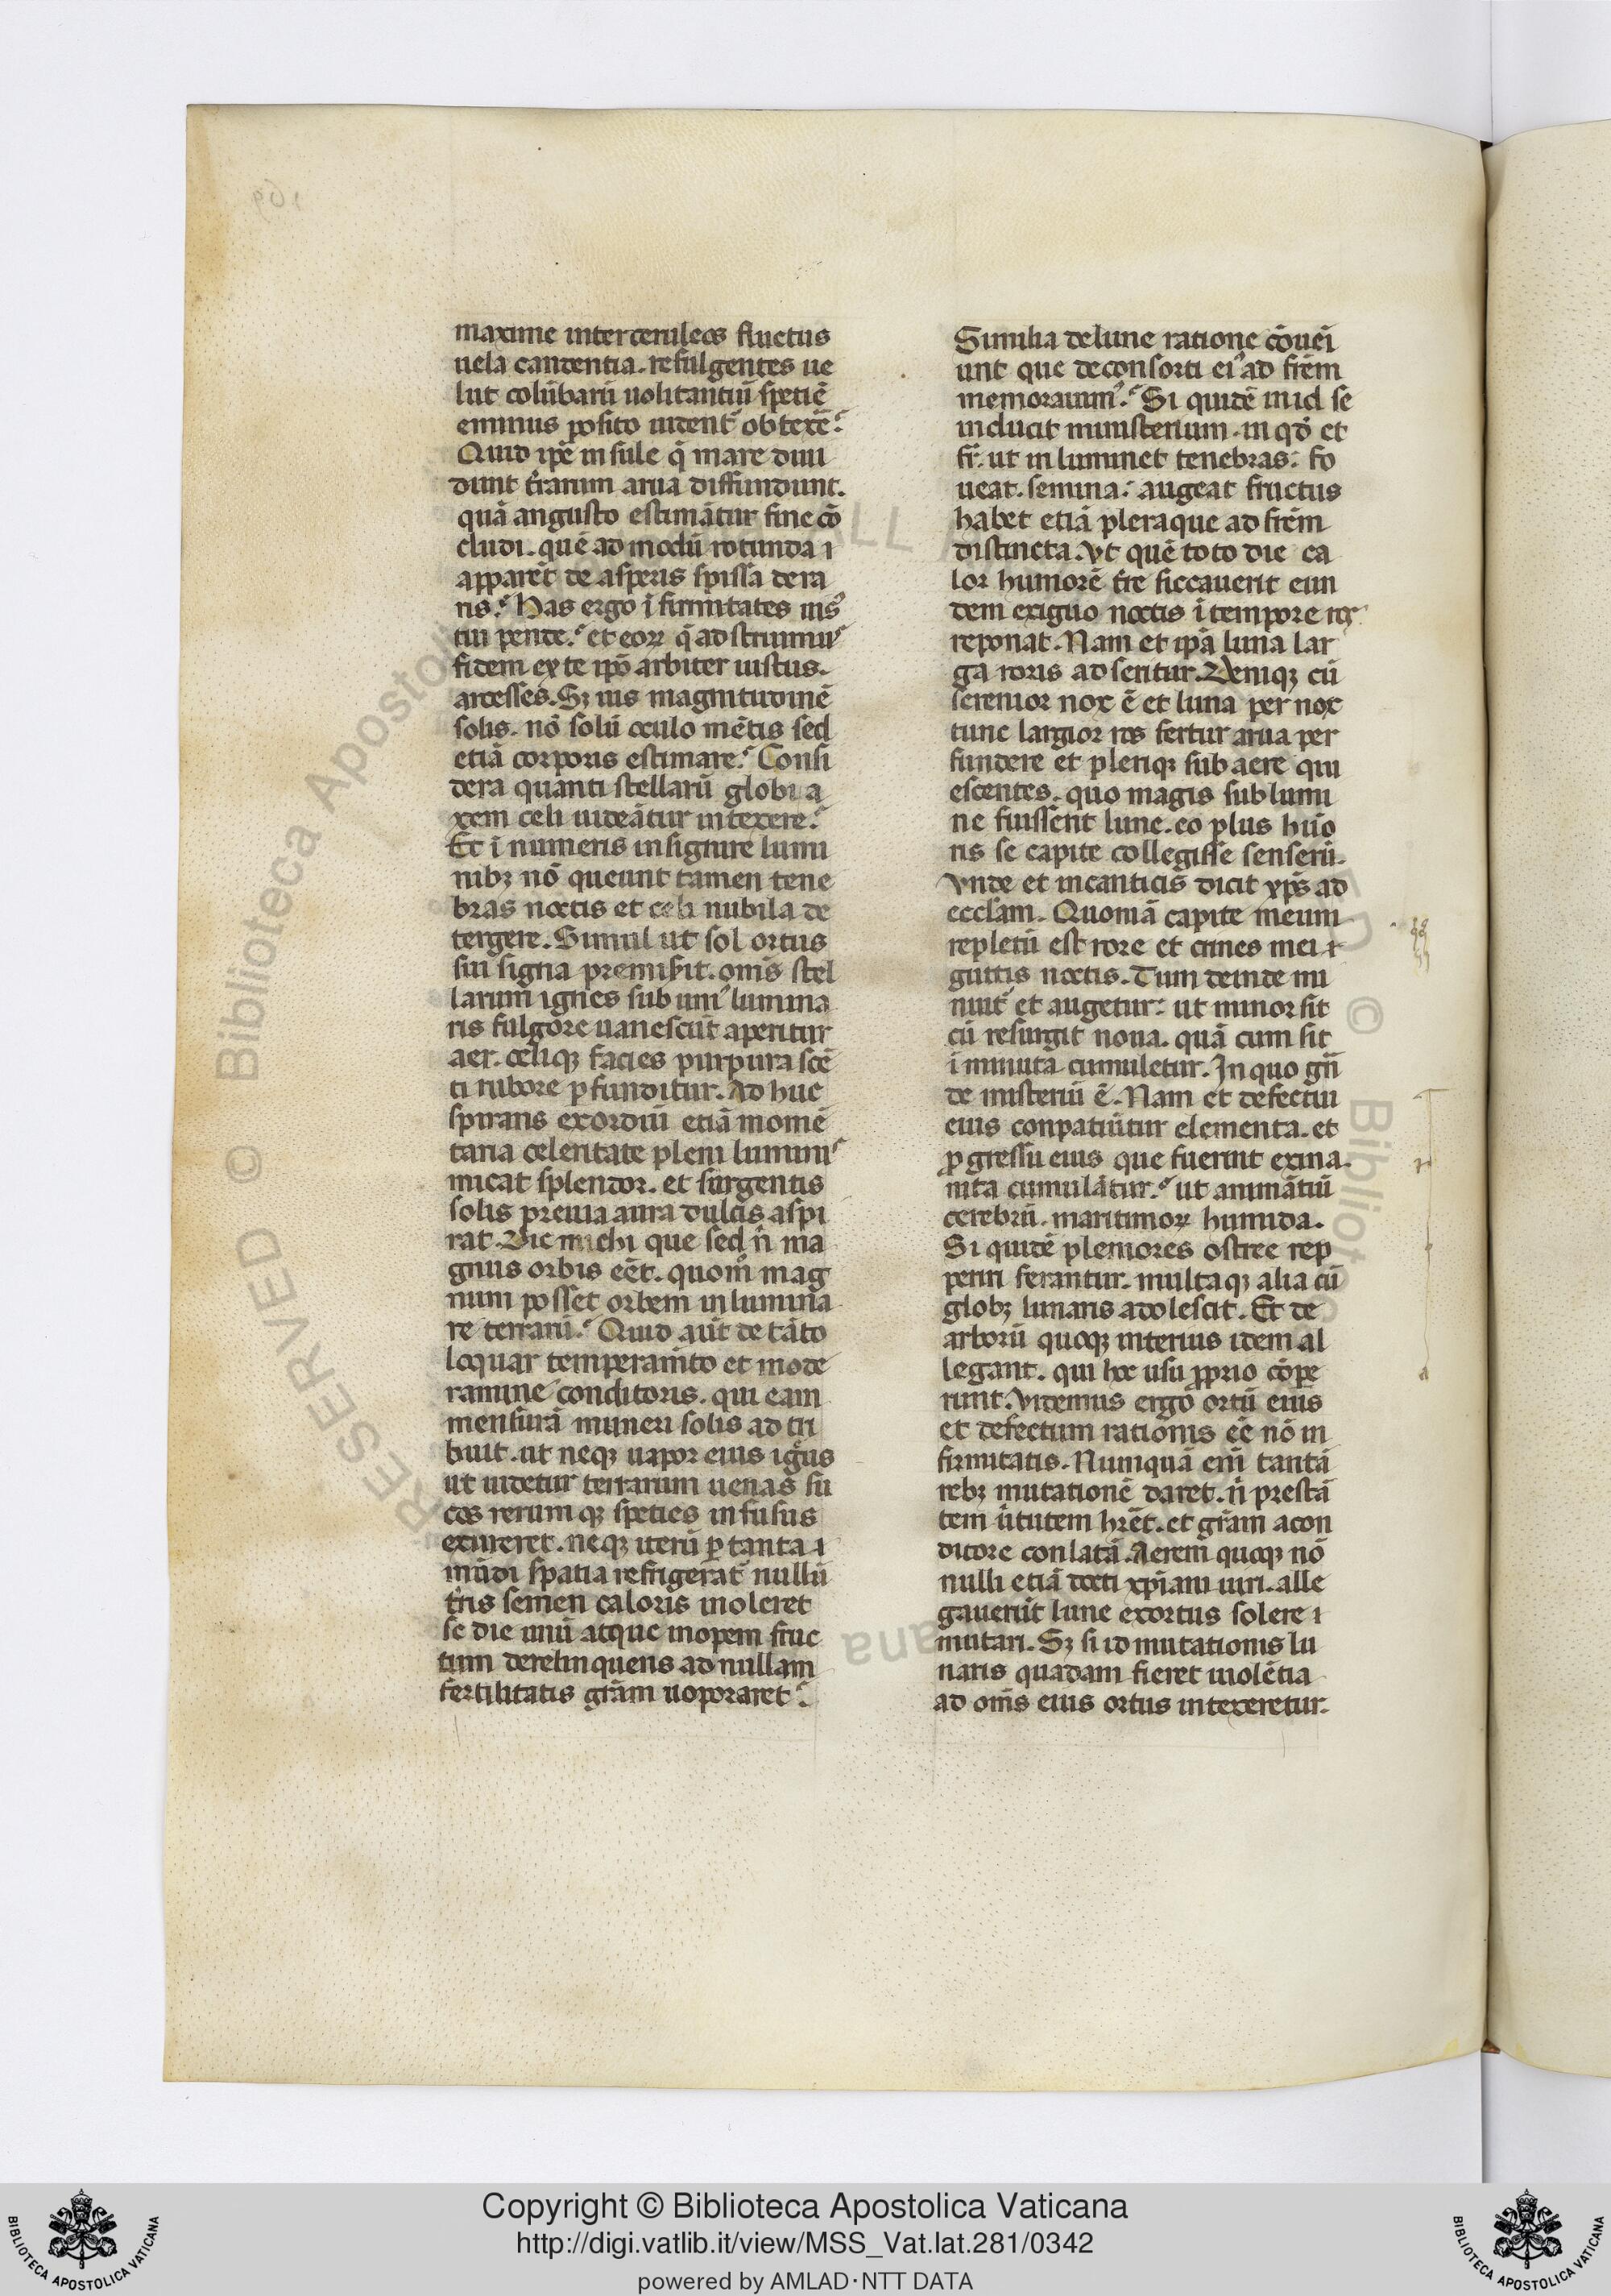 maxime inter ceruleos fluctus
uela candentia. refulgentes ue
lut colūbarū uolitantiū spetiē
eminus posito uident᷑ obtexē?
Quid ip̄e insule q̄ mare diui
dunt tr̄arum arua diffundunt.
quā angusto estimātur fine cō
cludi. quē ad modū rotunda i
apparet de asperis spissa de ra
ris? Has ergo īfirmitates uisꝰ
tui pende? et eoꝝ q̄ ad struimuˢ
fidem ex te ip̄o arbiter iustus.
arcesses. Sꝫ uis magnitudinē
solis. nō solū oculo mētis sed
etiā corporis estimare? Consi
dera quanti stellarū globi a
xem celi uideātur intexere?
Et ī numeris insignire lumi
nibꝫ nō queunt tamen tene
bras noctis et celi nubila de
tergere. Simul ut sol ortus
sui signa premisit. om̄s stel
larum ignes sub uniꝰ lumina
ris fulgore uanescūt aperitur
aer. celiqꝫ facies purpurascē
ti rubore ꝑfunditur. Ad huc
spirans exordiū etiā momē
tana celeritate pleni luminiˢ
micat splendor. et surgentis
solis preuia aura dulcis aspi
rat. Dic michi que sed n̄ ma
gnus orbis eēt. quom̄ mag
num posset orbem inlumina
re terrarū? Quid aūt de tāto
loquar temperam̄to et mode
ramine conditoris. qui eam
mensurā muneri solis ad tri
buit. ut neqꝫ uapor eius igᷠus
ut uidetur terrarum uenas su
cos rerum qꝫ speties infusus
exureret. neqꝫ iterū ꝑ tanta i
mūdi spatia refrigerat᷑ nullū
tr̄is semen caloris inoleret
se die unū atque inopem fruc
tum derelinquens ad nullam
fertilitatis gr̄am uoporaret?
Similia de lune ratione cōuēi
unt que de consorti eiꝰ ad fr̄em
memorauimꝰ? Si quidē in id se
inducit ministerium. in qđ et
fr̄. ut inluminet tenebras: fo
ueat. semina: augeat fructus
habet etiā pleraque ad fr̄em
distincta. vt quē toto die ca
lor humorē tr̄e siccauerit eun
dem exiguo noctis ī tempore ros
reponat. Nam et ip̄a luna lar
ga roris adseritur. Deniqꝫ cū
serenior nox ē et luna per nox
tunc largior ros fertur arua per
fundere et pleriqꝫ sub aere qui
escentes. quo magis sub lumi
ne fuissent lune. eo plus hūo
ris se capite collegisse senserū.
vnde et in canticis dicit xp̄s ad
ecclam. Quoniā capite meum
repletū est rore et crines mei i
guttis noctis. Tum deinde mi
nuit᷑ et augetur: ut minor sit
cū resurgit noua. quā cum sit
iminuta cumuletur. In quo gn̄
de misteriū ē. Nam et defectui
eius conpatiūtur elementa. et
ꝓgressu eius que fuerint exina.
nita cumulātur? ut animātiū
cerebrū. maritimoꝝ humida.
Si quidē pleniores ostree rep
periri ferantur. multaqꝫ alia cū
globꝫ lunaris adolescit. Et de
arborū quoqꝫ interius idem al
legant. qui hoc usu ꝓprio cōpe
runt. videmus ergo ortū eius
et defectum rationis eē nō in
firmitatis. Numquā em̄ tantā
rebꝫ mutationē daret. n̄ prestā
tem ūtutem hr̄et. et gr̄am a con
ditore conlatā. Aerem quoqꝫ nō
nulli etiā docti xp̄iani uiri. alle
gauerūt lune exortus solere i
mutari. Sꝫ si id mutationis lu
naris quadam fieret uiolētia
ad om̄s eius ortus intexeretur.
Copyright © Biblioteca Apostolica Vaticana
http://digi.vatlib.it/view/MSS_Vat.lat.281/0342
powered by AMLAD·NTT DATA